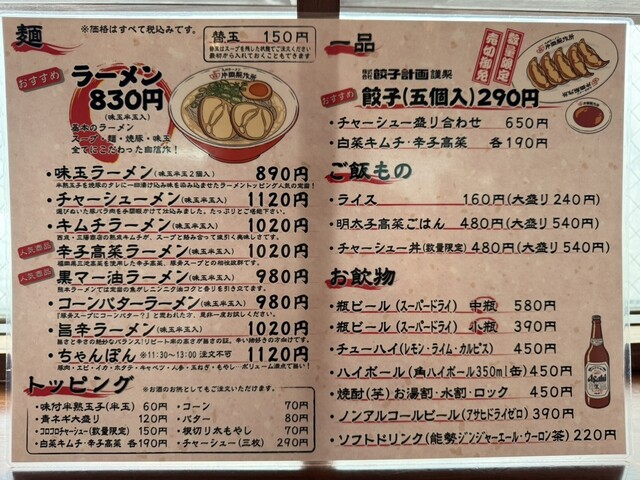 麺
※価格はすべて税込みです。
替玉 150円
替玉はスープを残した状態でご注文ください
最初から入れておくこともできます
おすすめ
ラーメン
830円
(味玉半玉入)
基本のラーメン
スープ・麺・焼豚・味玉
全てにこだわった御信作!
・味玉ラーメン(味玉半玉2個入) 890円
・チャーシューメン(味玉半玉入) 1120円
・キムチラーメン(味玉半玉入) 1020円
人気商品
・辛子高菜ラーメン(味玉半玉入) 1020円
人気商品
・黒マー油ラーメン(味玉半玉入) 980円
・コーンバターラーメン(味玉半玉入) 980円
「豚骨スープにコーンバター?」と思われた方、是非一度お試しください。
・旨辛ラーメン(味玉半玉入) 1020円
・ちゃんぽん ※11:30~13:00 注文不可 1120円
豚肉・エビ・イカ・ホタテ・キャベツ・人参・玉ねぎ・もやし・ボリューム満点で旨い!
トッピング
※お酒のお供としてもご注文いただけます。
・味付半熟玉子(半玉) 60円
・青ネギ大盛り 120円
・コロコロチャーシュー(数量限定) 150円
・白菜キムチ・辛子高菜 各190円
・コーン 70円
・バター 80円
・根切り太もやし 70円
・チャーシュー(三枚) 290円
一品
数量限定
売切御免
餃子計画 謹製
おすすめ
餃子(五個入)290円
・チャーシュー盛り合わせ 650円
・白菜キムチ・辛子高菜 各190円
ご飯もの
・ライス 160円(大盛り240円)
・明太子高菜ごはん 480円(大盛り540円)
・チャーシュー丼(数量限定) 480円(大盛り540円)
お飲物
・瓶ビール(スーパードライ) 中瓶 580円
・瓶ビール(スーパードライ) 小瓶 390円
・チューハイ(レモン・ライム・カルピス) 450円
・ハイボール(角ハイボール350ml缶) 450円
・焼酎(芋)お湯割・水割・ロック 450円
・ノンアルコールビール(アサヒドライゼロ) 390円
・ソフトドリンク(能勢ジンジャーエール・ウーロン茶) 220円
Asahi